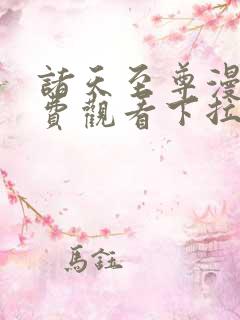 諸天至尊漫
費觀看下拉
馬鈺